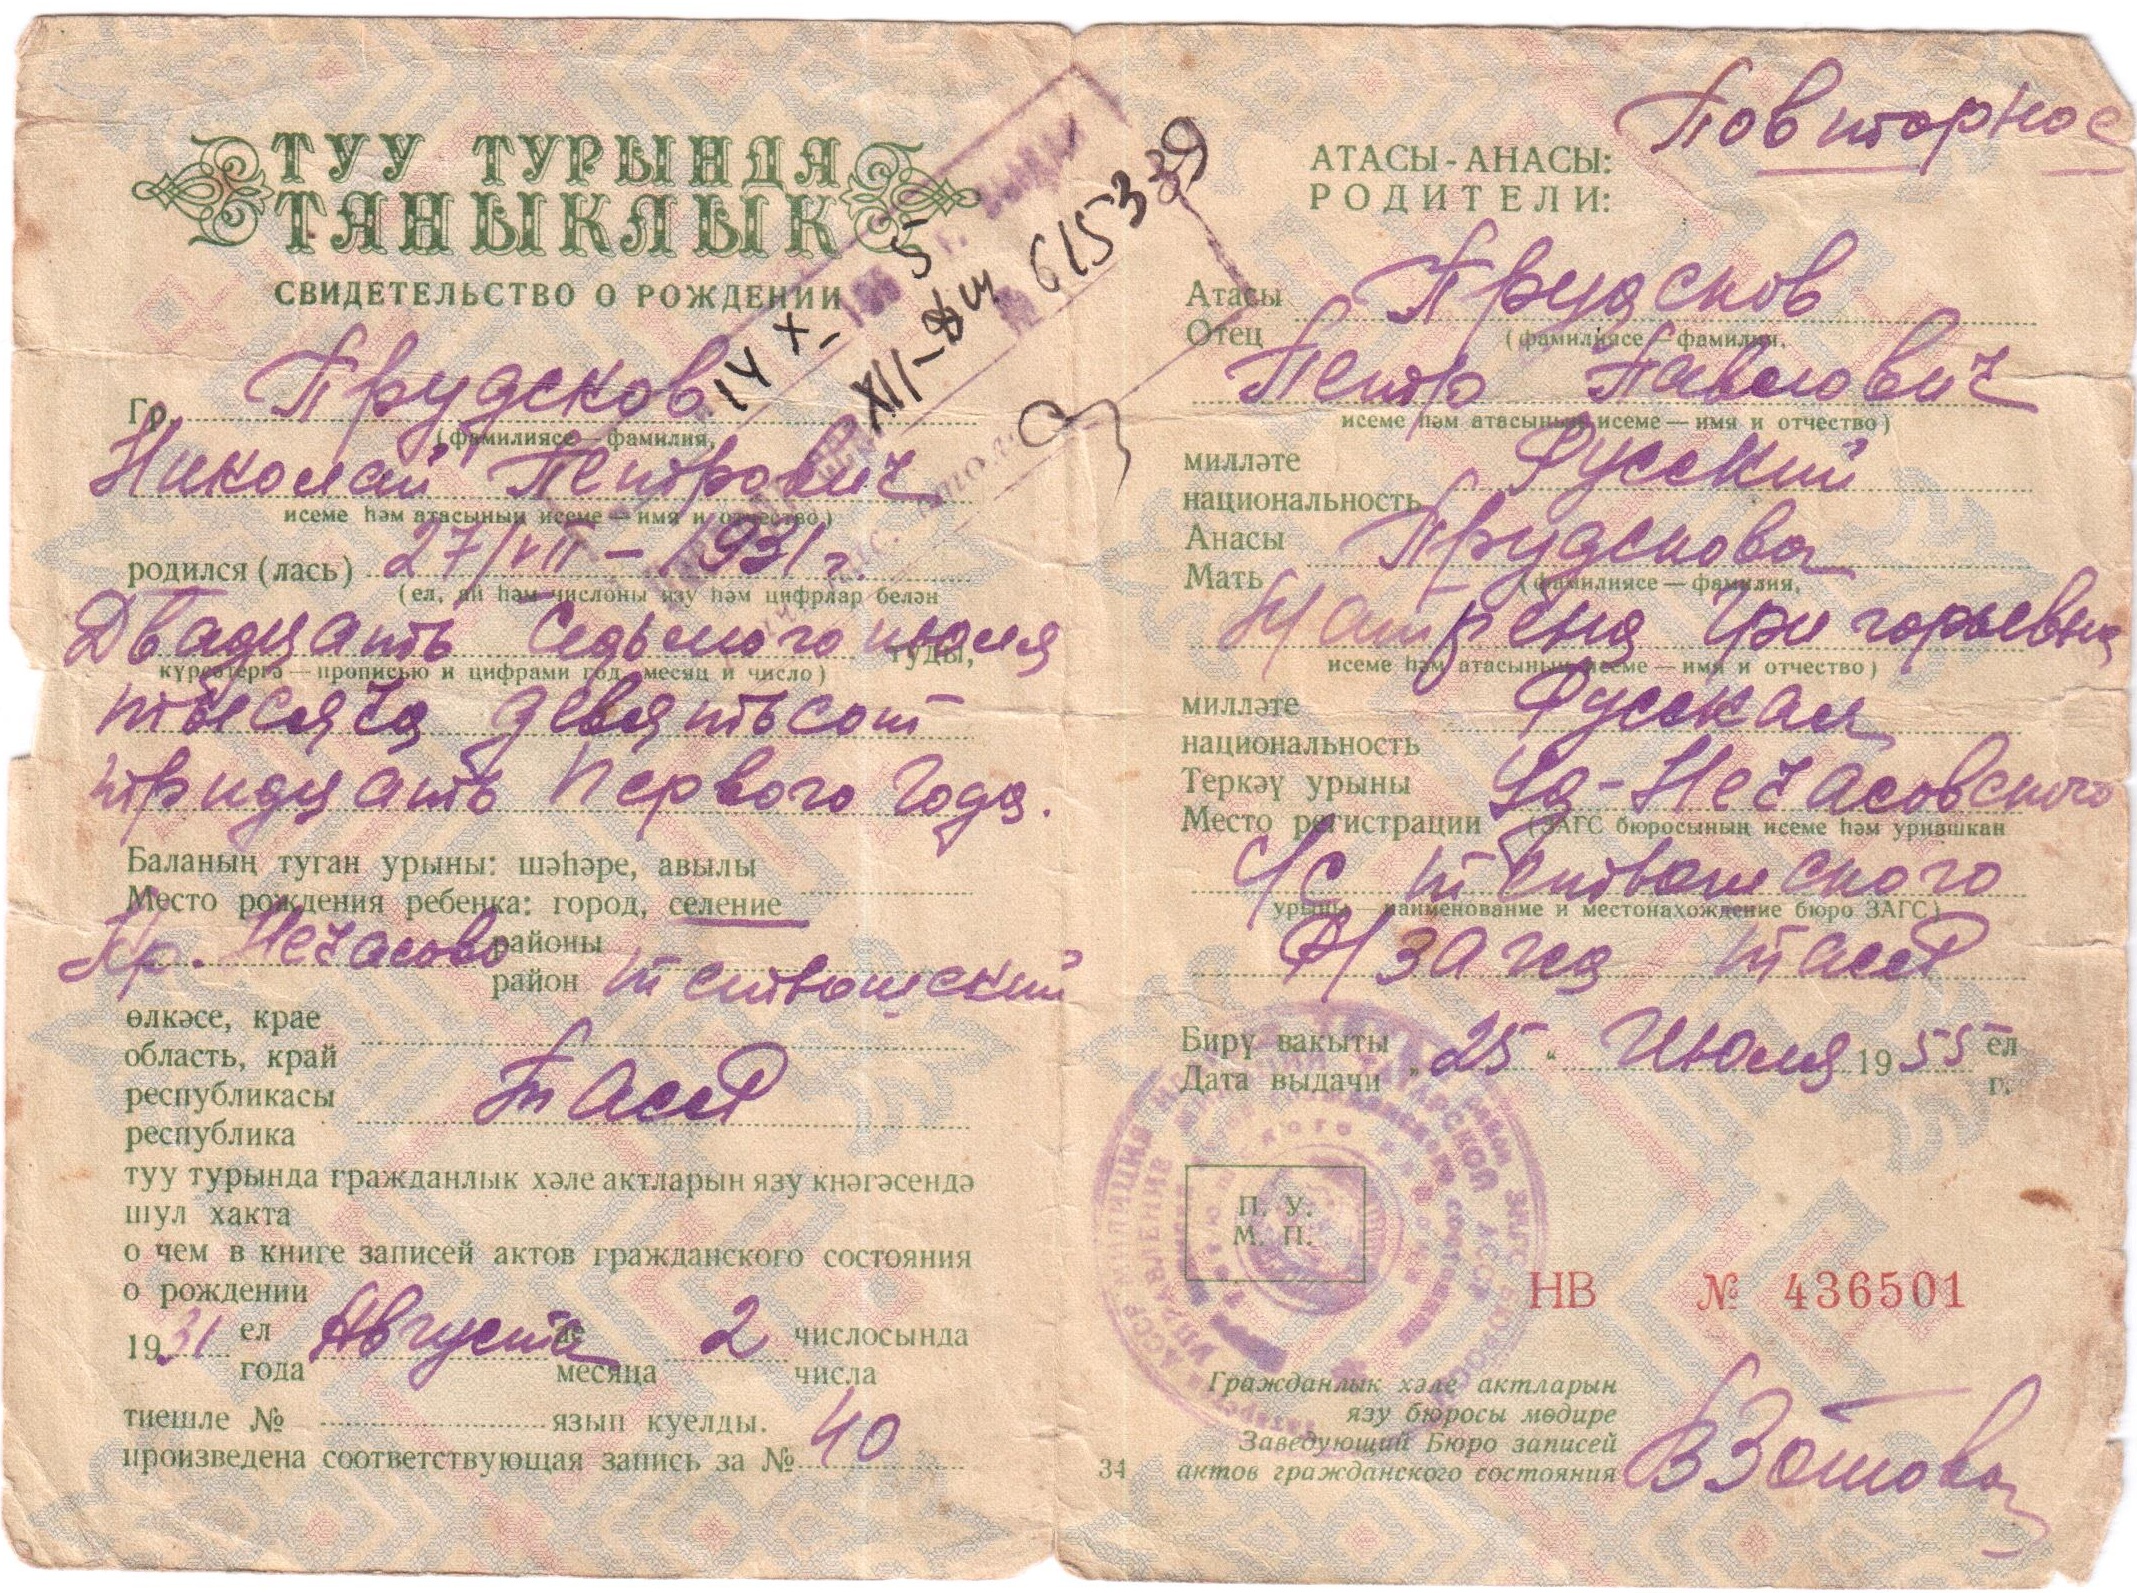 ТУУ ТУРЫНДА
ТАНЫКЛЫК
СВИДЕТЕЛЬСТВО О РОЖДЕНИИ
Гр. Прудсков
(фамилиясе — фамилия,
Николай Петрович
исеме һәм атасының исеме — имя и отчество)
родился (лась) 27/VII – 1931 г.
(ел, ай һәм числоны язу һәм цифрлар белән
Двадцать седьмого июля туды,
күрсәтергә — прописью и цифрами год, месяц и число)
тысяча девятьсот
тридцать первого года.
Баланың туган урыны: шәһәре, авылы
Место рождения ребенка: город, селение
Кр. Нечасово районы
район Тетюшский
өлкәсе, крае
область, край
республикасы
республика ТАССР
туу турында гражданлык хәле актларын язу кнәгәсендә
шул хакта
о чем в книге записей актов гражданского состояния
о рождении
19 31 ел Августа ае 2 числосында
года месяца числа
тиешле № язып куелды.
произведена соответствующая запись за № 40
14 X – 195 5 г.
XII-
№ 615339
Повторное
АТАСЫ-АНАСЫ:
РОДИТЕЛИ:
Атасы
Отец Прудсков
(фамилиясе — фамилия,
Петр Павлович
исеме һәм атасының исеме — имя и отчество)
милләте
национальность Русский
Анасы
Мать Прудскова
(фамилиясе — фамилия,
Матрена Григорьевна
исеме һәм атасының исеме — имя и отчество)
милләте
национальность Русская
Теркәү урыны
Место регистрации -Нечасовского
(ЗАГС бюросының исеме һәм урнашкан
С/С Тетюшского
урыны — наименование и местонахождение бюро ЗАГС)
Р/загса ТАССР
Бирү вакыты
Дата выдачи „25“ Июля 1955 ел
г.
П. У.
М. П.
НВ № 436501
Гражданлык хәле актларын
язу бюросы мөдире
Заведующий Бюро записей
актов гражданского состояния ВЗотова
34